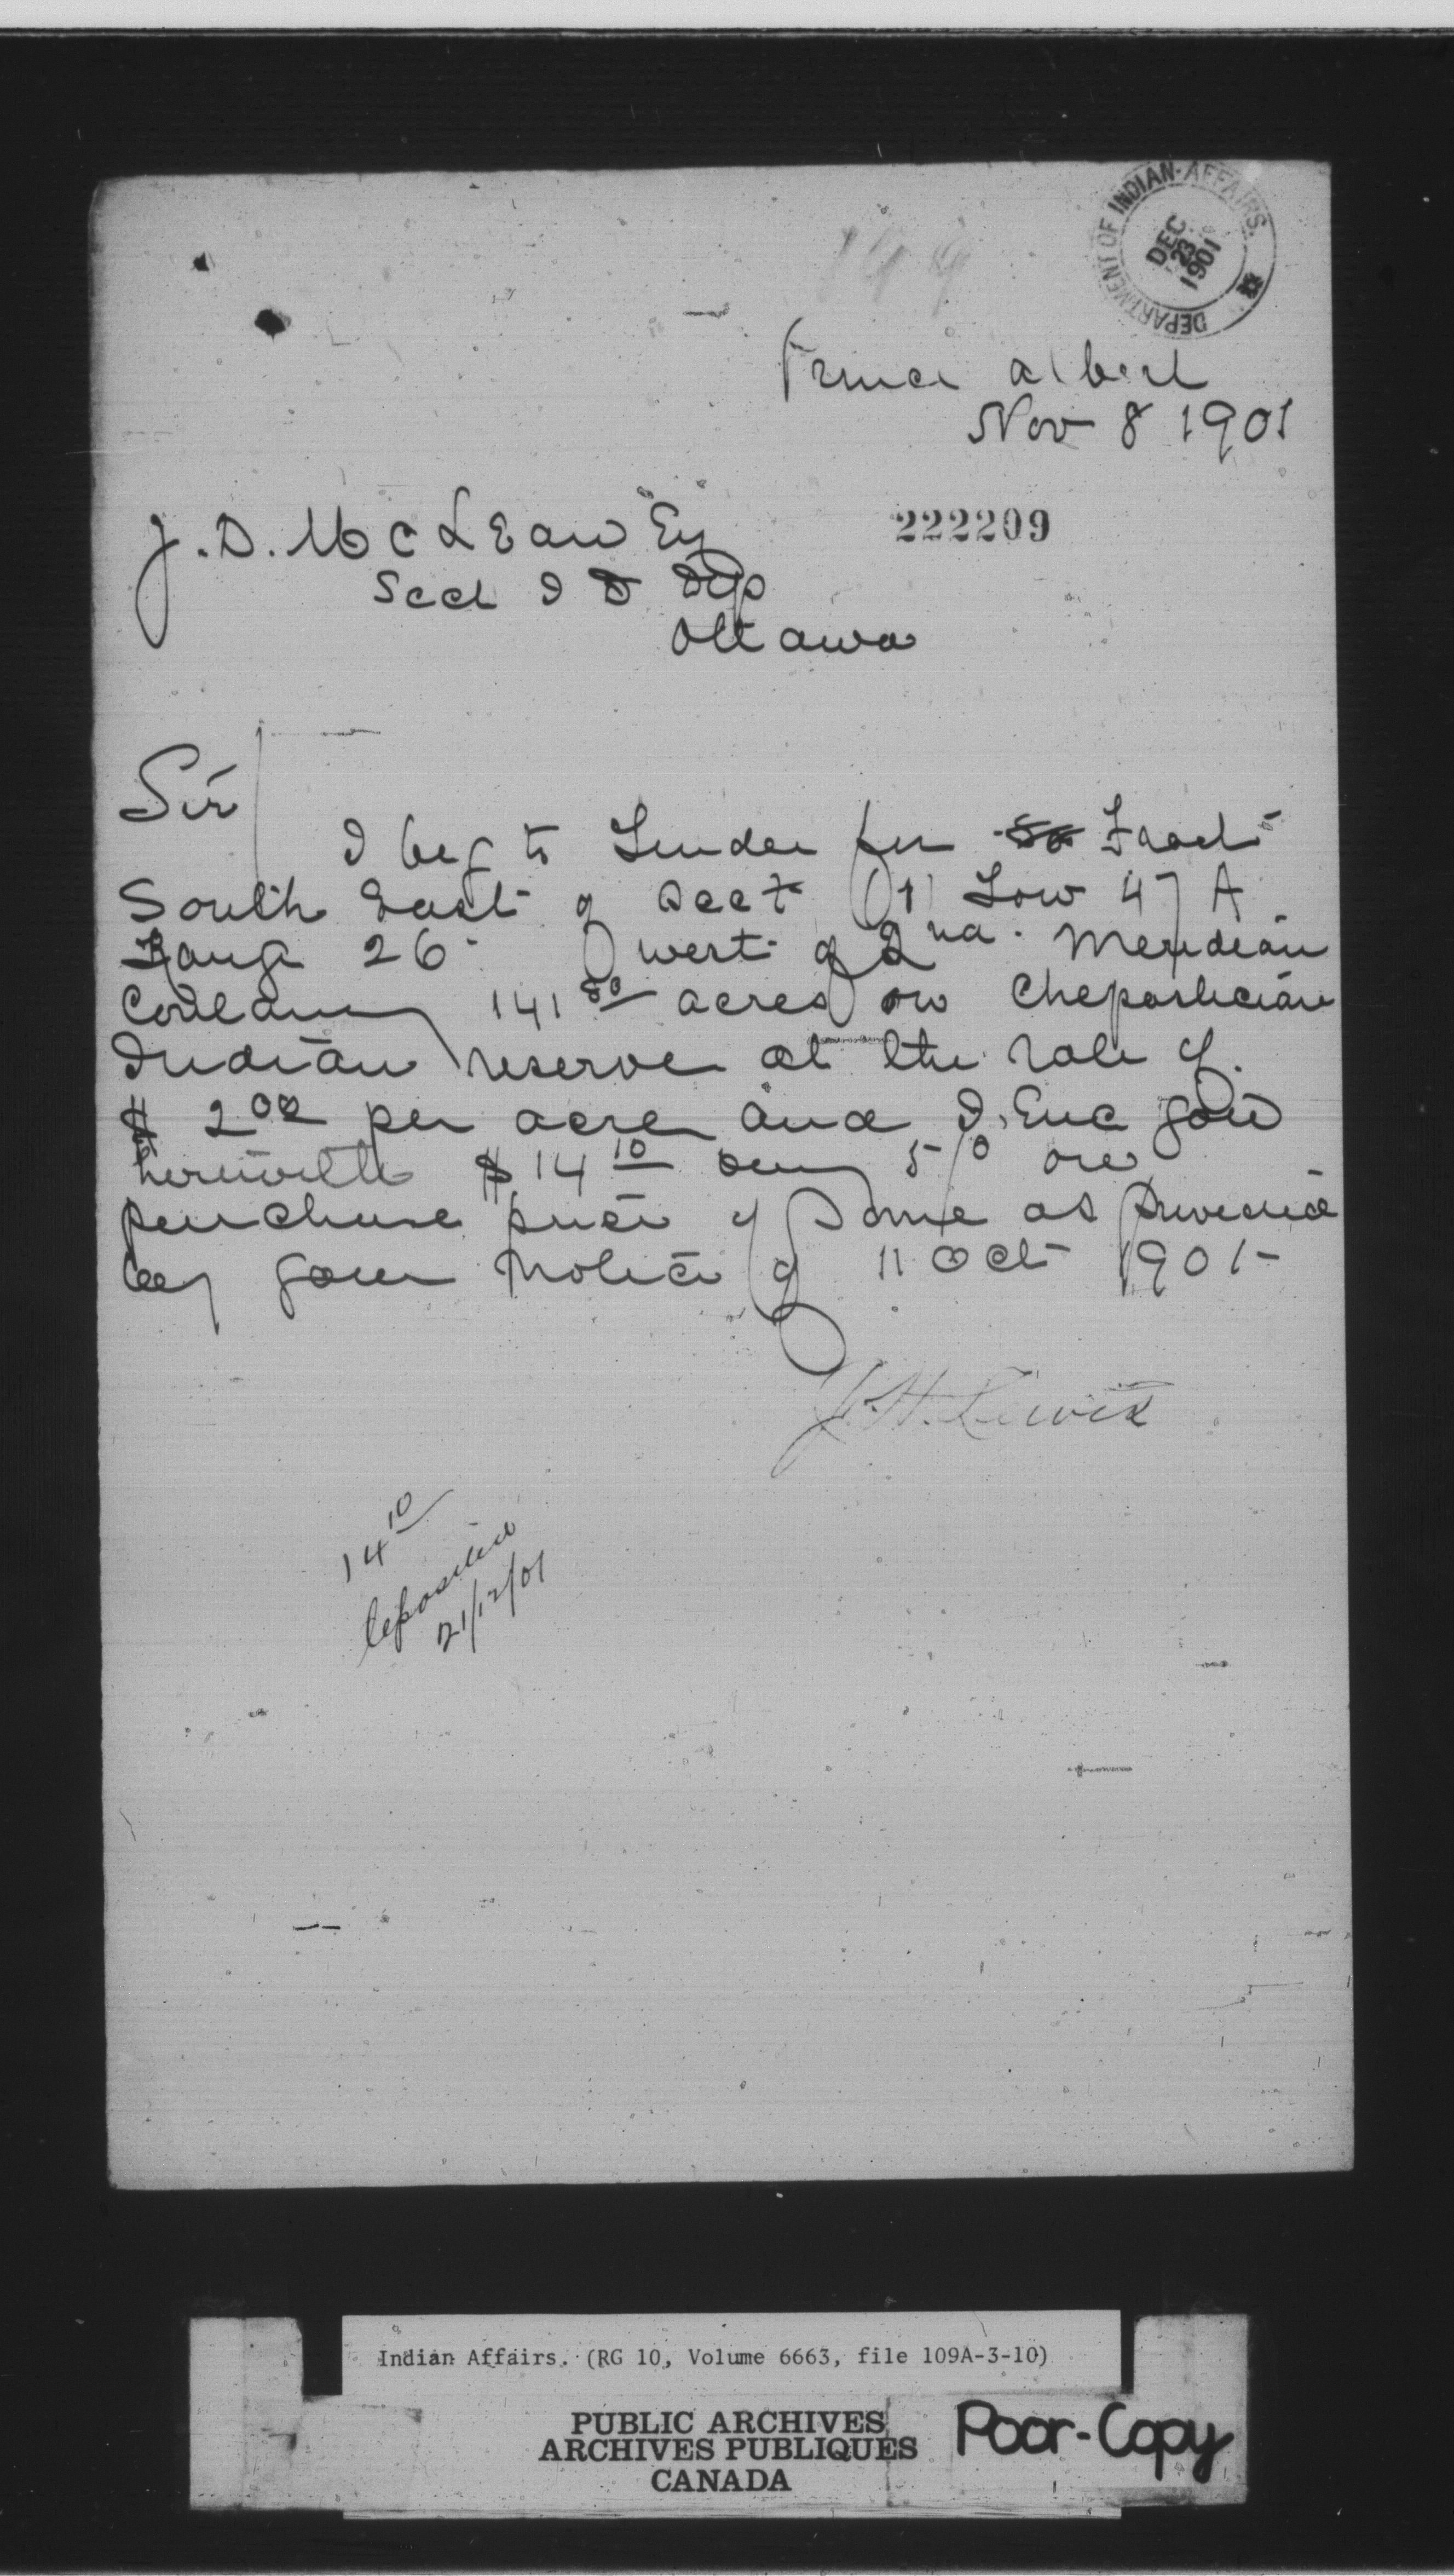 149
DEPARTMENT OF INDIAN AFFAIRS.
DEC
23
1901
Prince Albert
Nov 8 1901
222209
J. D. McLean Esq
Sect I D Dep
Ottawa
Sir
I beg to Tender for Fract
South East of Sect (1) Tow 47 A
Range 26 west of 2nd Meridian
Containing 141 80 acres on Chepastician
Indian reserve at the rate of
$ 2 00 per acre and I Enc you
herewith $ 14 10 being 5 % on
purchase price of Same as provided
by your Notice of 11 Oct 1901
J. H. Lewis
14 10
deposited
21/12/01
Indian Affairs. (RG 10, Volume 6663, file 109A-3-10)
PUBLIC ARCHIVES
ARCHIVES PUBLIQUES
CANADA
Poor-Copy